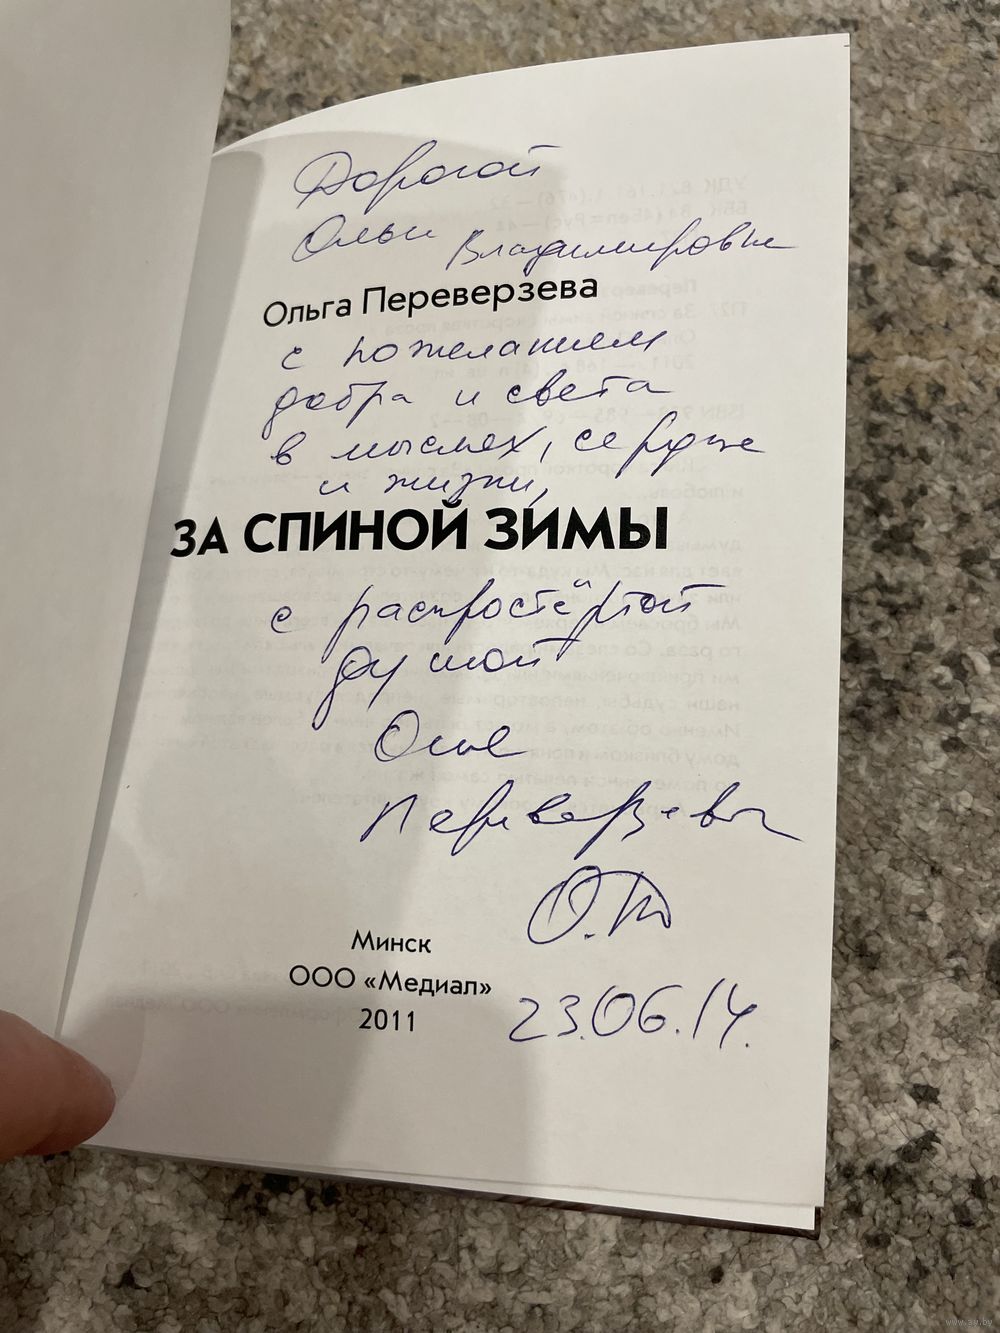 Дорогой
Ольги Владимировне
Ольга Переверзева
с пожеланием
добра и света
в мыслях, сердце
и жизни,
ЗА СПИНОЙ ЗИМЫ
с распростёртой
душой
Переверзева
Минск
ООО «Медиал»
2011
23.06.14.
www.ay.by